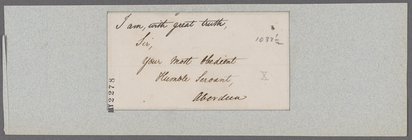 I am, with great truth,
Sir,
Your Most Obedient
Humble Servant,
Aberdeen
X